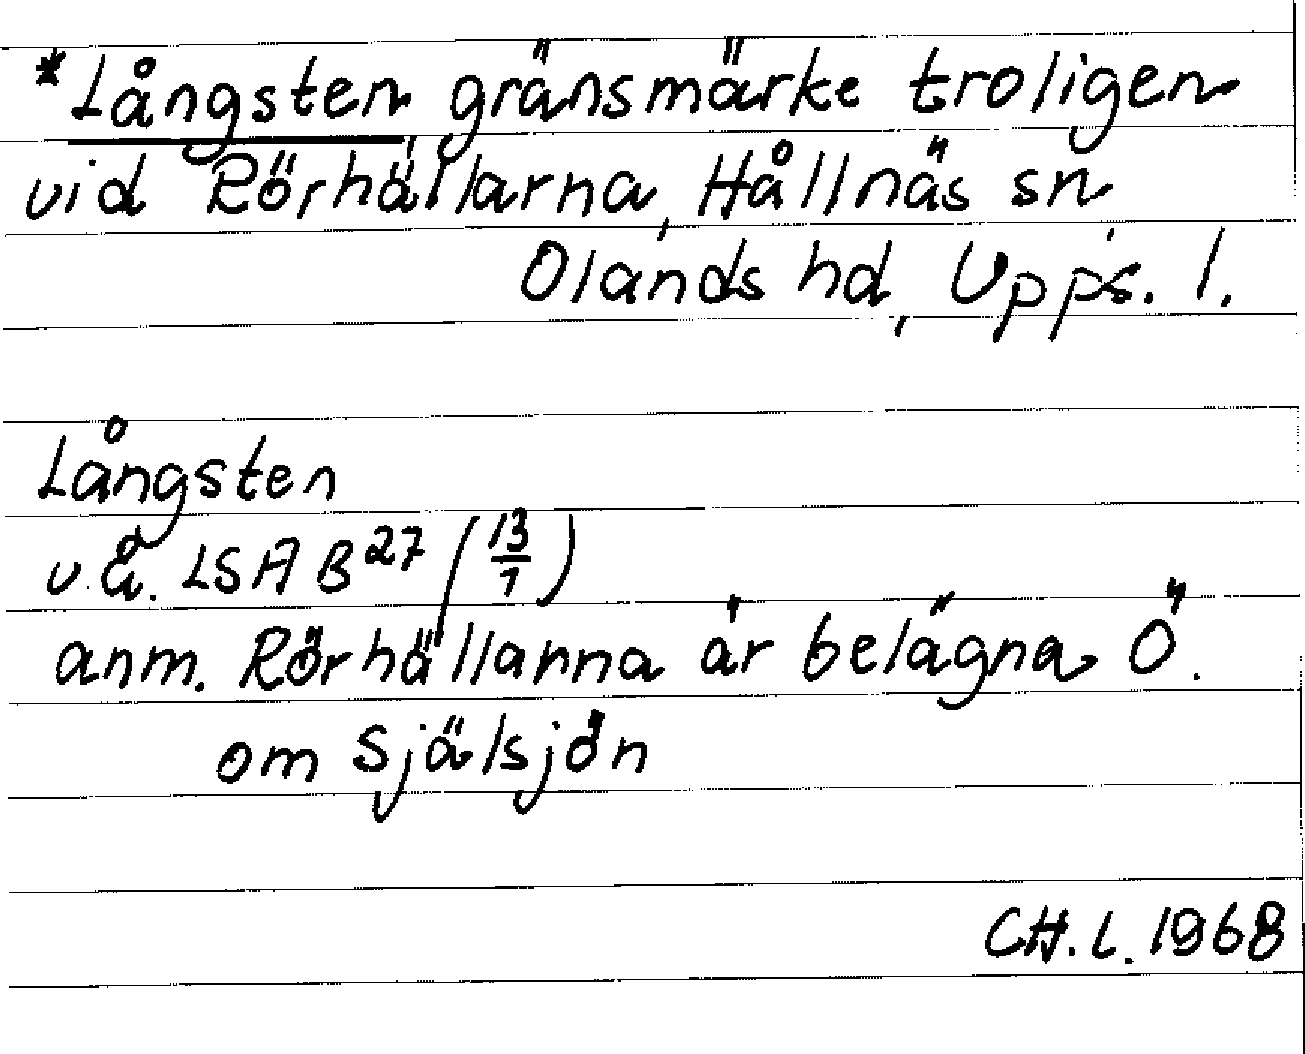 *Långsten, gränsmärke troligen
vid Rörhällarna, Hållnäs sn
Olands hd, Upps. l.
Långsten
u.å. LSA B 27 (13/1)
anm. Rörhällarna är belägna Ö.
om Själsjön
CH. L. 1968